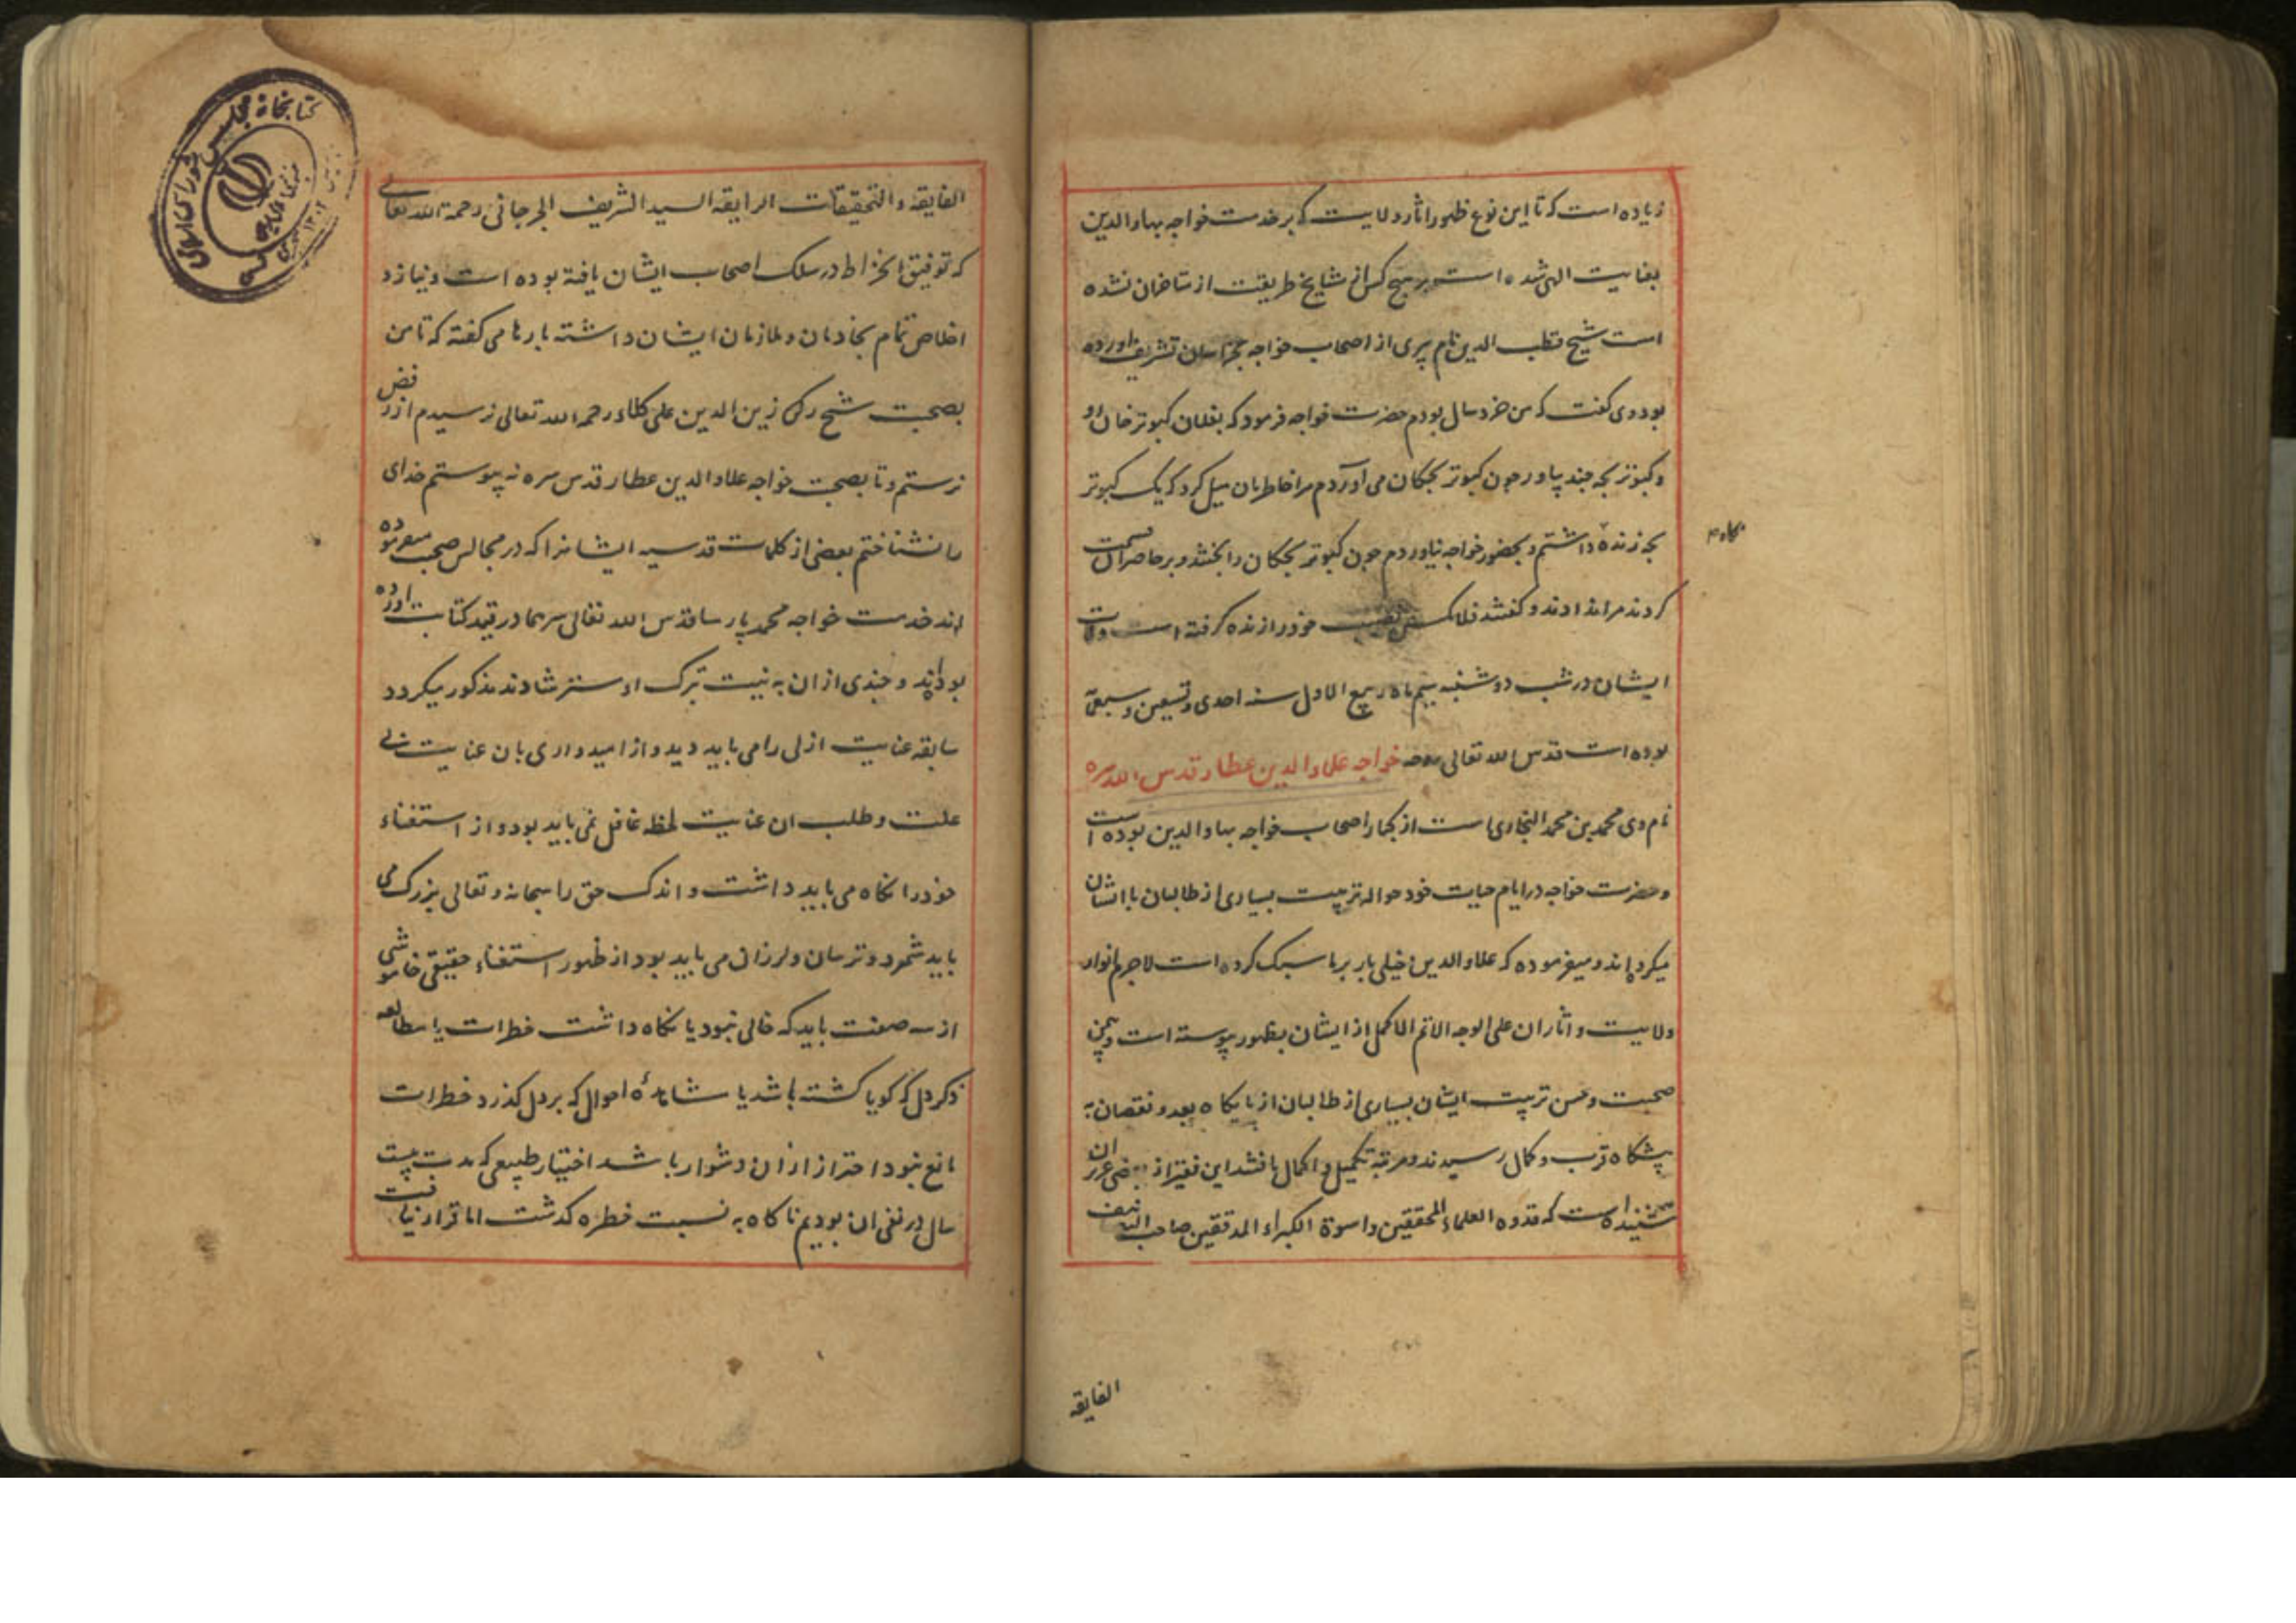 زیاده است که تا این نوع ظهور اثار ولایت که بر خدمت خواجه بهاء الدین
بغایت الهی شده است بر هیچ کس از مشایخ طریقت از متاخران نشده
است شیخ قطب الدین نام پیری از اصحاب خواجه بخراسان تشریف اورده
بود وی گفت که من خرد سال بودم حضرت خواجه فرمود که بفلان کبوتر خان رو
و کبوتر بچه چند بیاور چون کبوتر بچکان می آوردم مرا خاطر بان میل کرد که یک کبوتر
بچه زنده داشتم و بحضور خواجه نیاوردم چون کبوتر بچکان را بختند و بر حاضران قسمت
نکاه م
کردند مرا ندادند و گفتند فلان کس نصیب خود را زنده گرفته است وفات
ایشان در شب دوشنبه سیم ماه ربیع الاول سنه احدی وتسعین وسبعمایه
بوده است قدس الله تعالی روحه خواجه علاء الدین عطار قدس الله سره
نام وی محمد بن محمد البخاری است از کبار اصحاب خواجه بهاء الدین بوده است
و حضرت خواجه در ایام حیات خود حواله تربیت بسیاری از طالبان با ایشان
میکرده اند و میفرموده که علاء الدین خیلی بار بر ما سبک کرده است لاجرم انوار
ولایت و اثار ان علی الوجه الاتم الاکمل از ایشان بظهور پیوسته است و بیمن
صحبت و حسن تربیت ایشان بسیاری از طالبان از پایکاه بعد و نقصان به
پیشکاه قرب و کمال رسیدند و مرتبه تکمیل و اکمال یافتند این فقیر از بعضی عزیزان
شنیده است که قدوه العلماء المحققین واسوة الکبراء المدققین صاحب التصنیف
الفایقه
الفایقه والتحقیقات الرایقه السید الشریف الجرجانی رحمة الله تعالی
که توفیق انخراط در سلک اصحاب ایشان یافته بوده است و نیاز و
اخلاص تمام بخادمان و ملازمان ایشان داشته بارها می گفته که تا من
بصحبت شیخ زین الدین علی کلاء رحمه الله تعالی نرسیدم از رفض
نرستم و تا بصحبت خواجه علاء الدین عطار قدس سره نه پیوستم خدای
را نشناختم بعضی از کلمات قدسیه ایشانرا که در مجالس صحبت میفرموده
اند خدمت خواجه محمد پارسا قدس الله تعالی سرهما در قید کتابت اورده
بوده اند و چندی از ان به نیت تبرک و استرشاد مذکور میکردد
سابقه عنایت ازلی را می باید دید و از امیدواری بان عنایت بی
علت و طلب ان عنایت لحظه غافل نمی باید بود و از استغناء
خود را نکاه می باید داشت و اندک حق را سبحانه و تعالی بزرک می
باید شمرد و ترسان و لرزان می باید بود از ظهور استغناء حقیقی خاموشی
از سه صفت باید که خالی نبود یا نکاه داشت خطرات یا مطالعه
ذکر دل که کویا کشته باشد یا مشاهدهٔ احوال که بر دل کذرد خطرات
مانع نبود احتراز از ان دشوار باشد اختیار طبیعی که مدت بیست
سال در نفی ان بودیم ناکاه به نسبت خطره کذشت اما قرار نیافت
کتابخانه مجلس شورای اسلامی